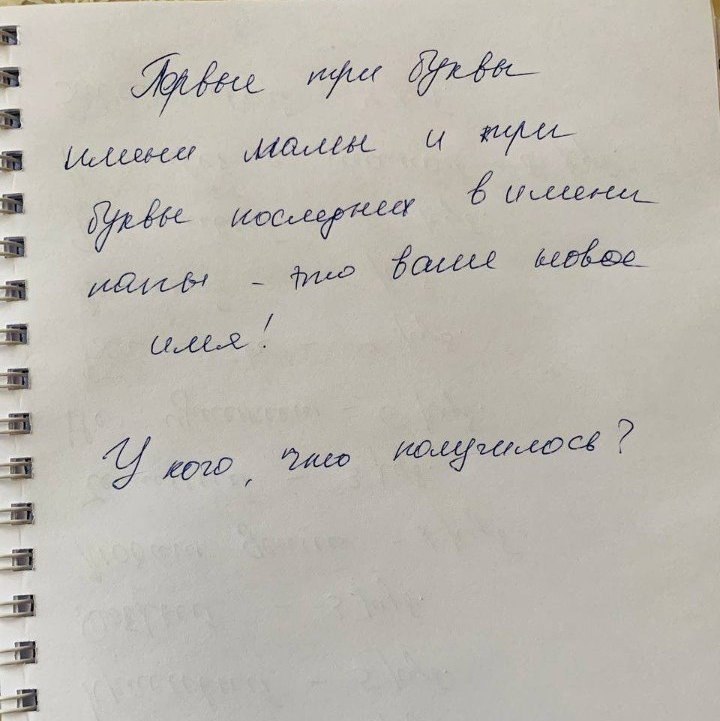 Первые три буквы
имени мамы и три
буквы последних в имени
папы - это ваше новое
имя!
У кого, что получилось?